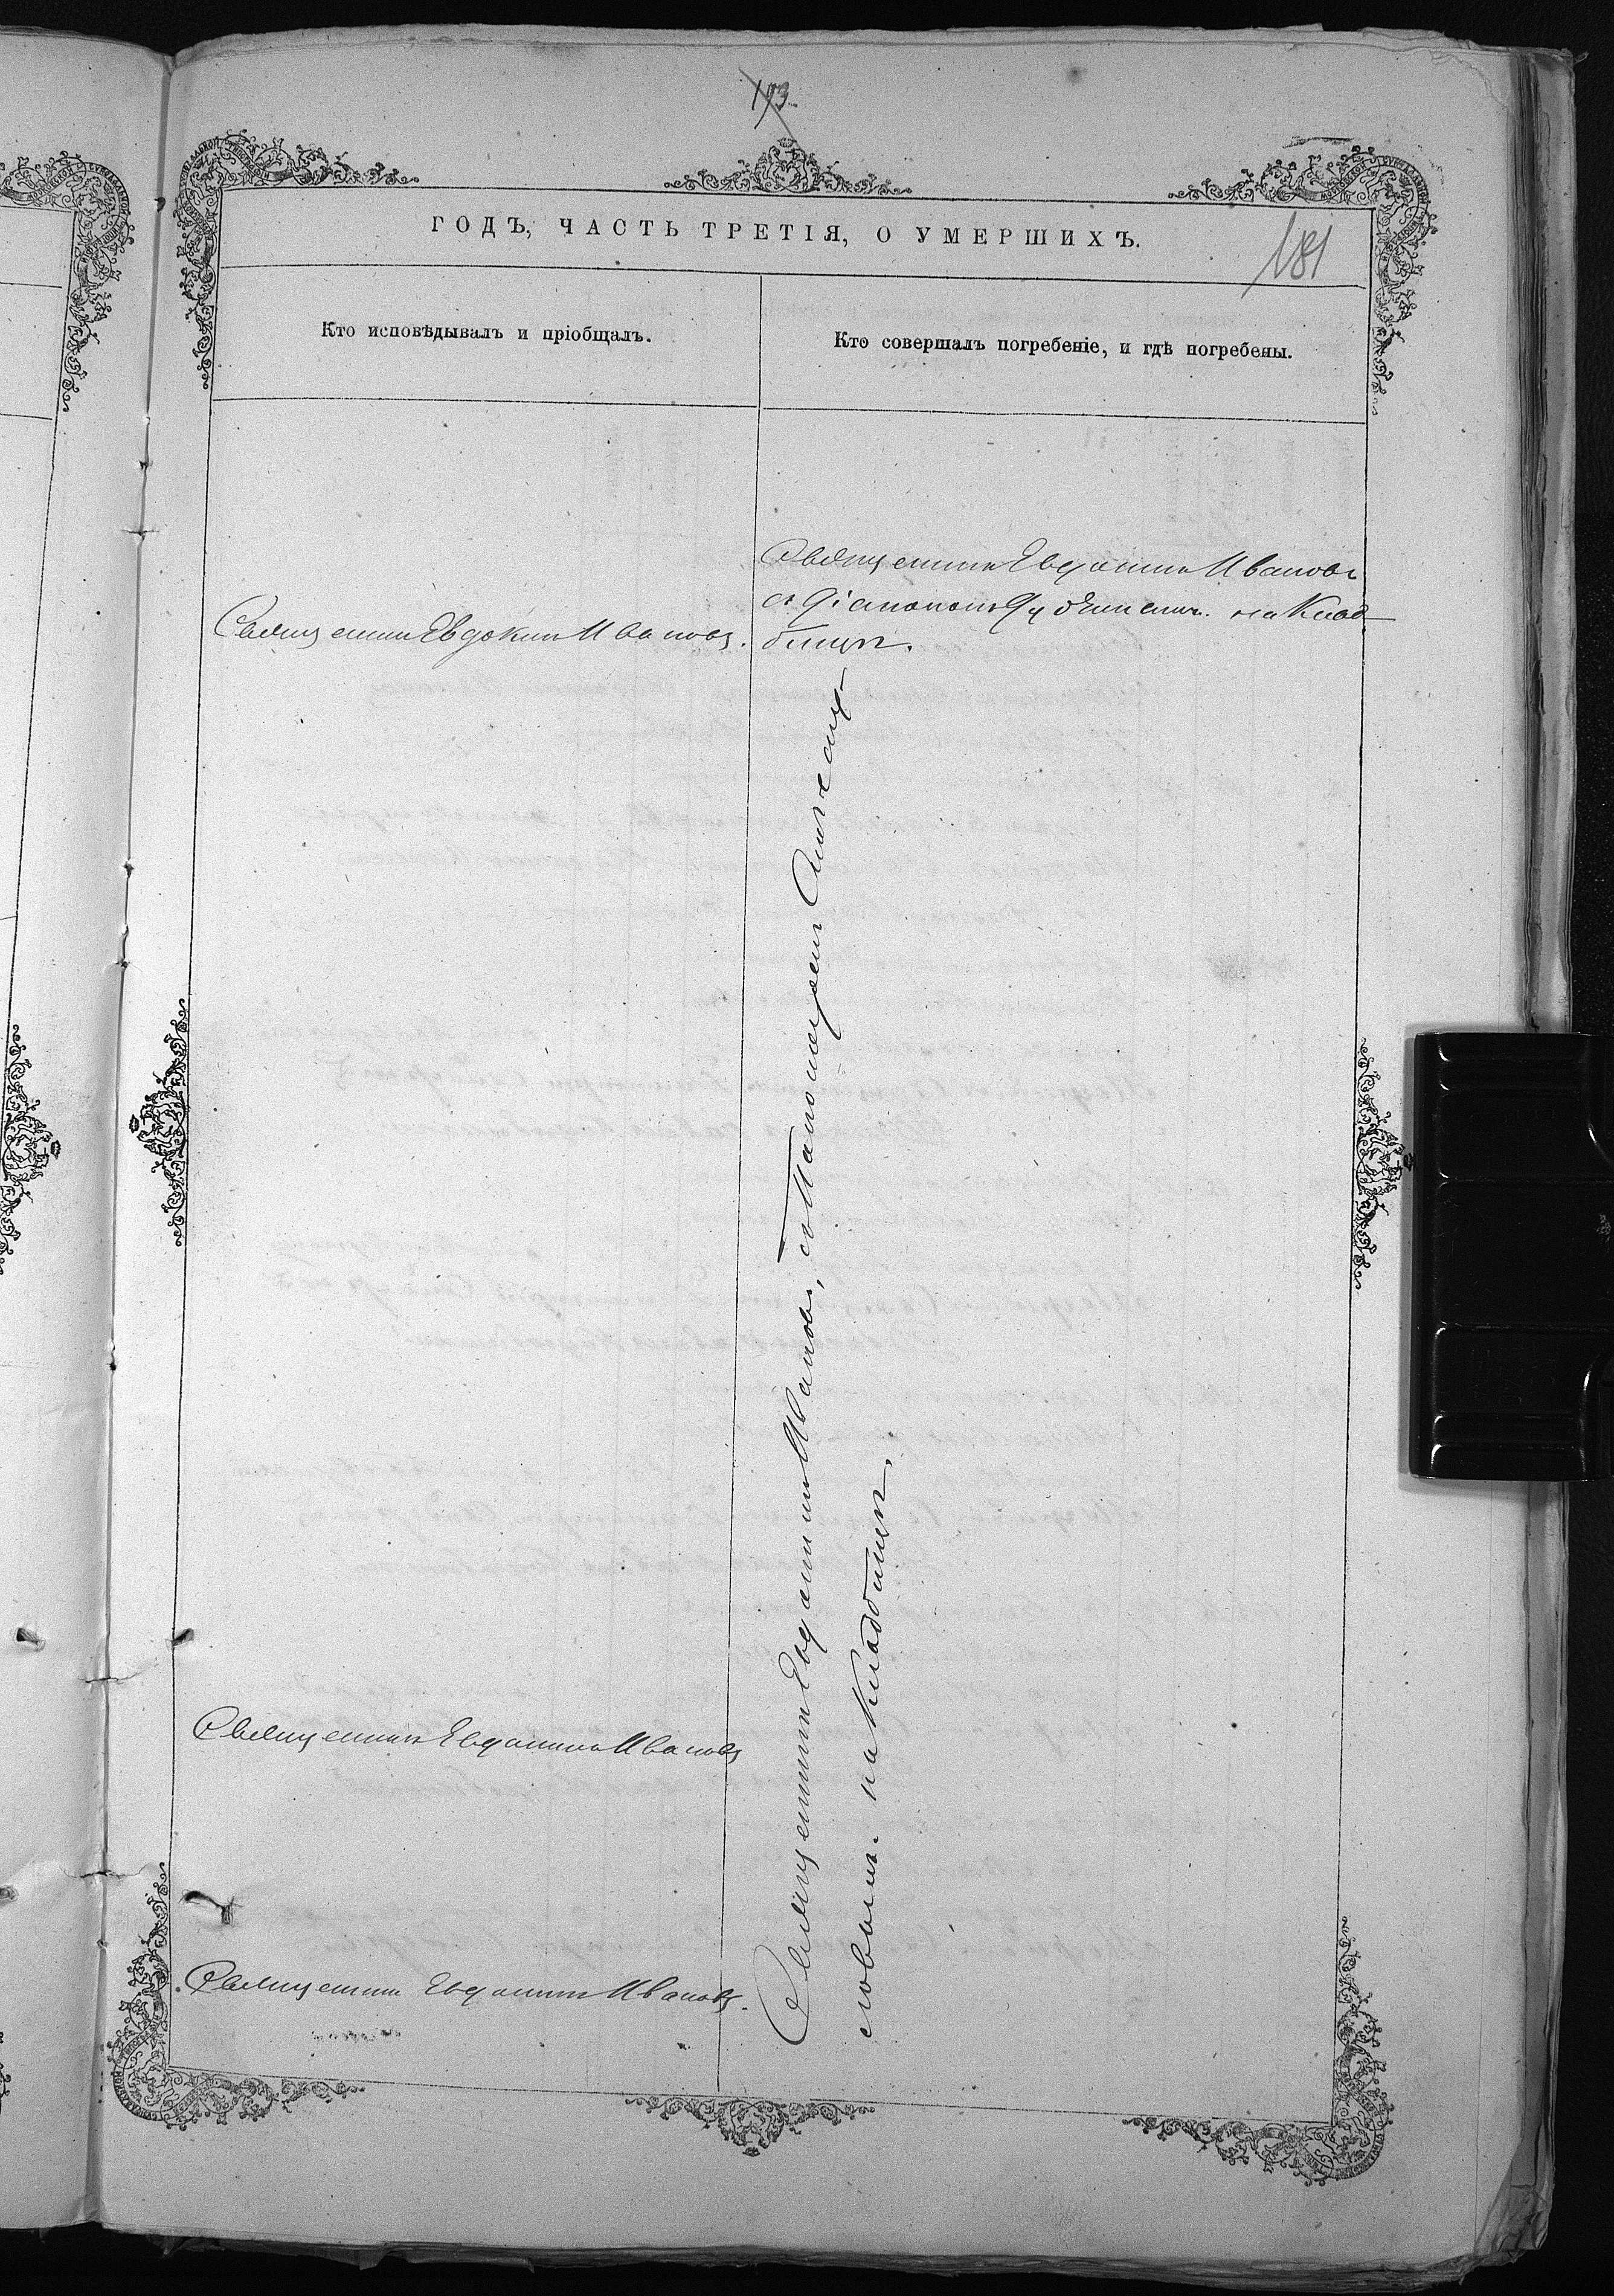 193.
ГОДЪ, ЧАСТЬ ТРЕТІЯ, О УМЕРШИХЪ.
181
Кто исповѣдывалъ и пріобщалъ.
Кто совершалъ погребеніе, и гдѣ погребены.
Священникъ Евдокимъ Ивановъ
съ діакономъ на Клад-
бищѣ.
Священникъ Евдокимъ Ивановъ.
Священникъ Евдокимъ Ивановъ, на Кладбищѣ.
Священникъ Евдокимъ Ивановъ
Священникъ Евдокимъ Ивановъ.